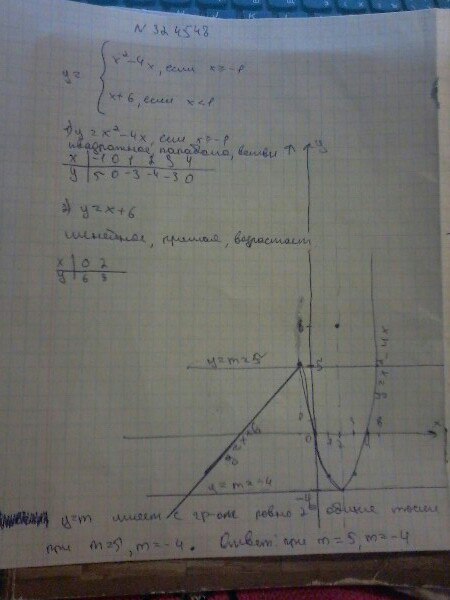 N 324548
y = { x² - 4x, если x ≥ -1
x + 6, если x < -1
1) y = x² - 4x, если x ≥ -1
квадратное, парабола, ветви ↑
x | -1 0 1 2 3 4
y | 5 0 -3 -4 -3 0
2) y = x + 6
линейное, прямая, возрастает
x | 0 2
y | 6 8
y
y = m = 5
5
y = x² - 4x
y = x + 6
0 1 2 3 4 x
y = m = -4
-4
y = m имеет с гр-ом ровно 2 общие точки
при m = 5, m = -4. Ответ: при m = 5, m = -4